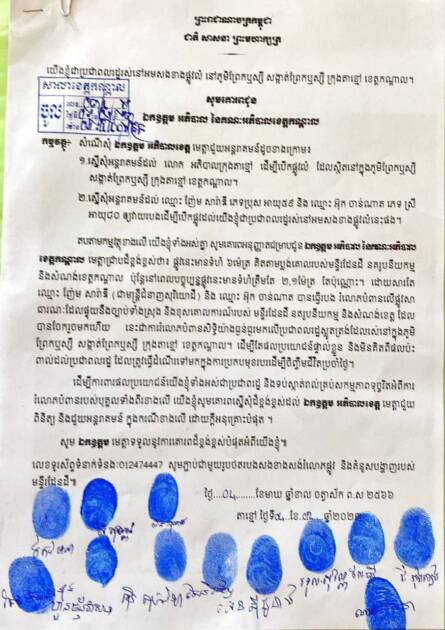 ព្រះរាជាណាចក្រកម្ពុជា
ជាតិ សាសនា ព្រះមហាក្សត្រ
យើងខ្ញុំជាប្រជាពលរដ្ឋរស់នៅអមសងខាងផ្លូវលំ នៅភូមិព្រែកឫស្សី សង្កាត់ព្រែកឫស្សី ក្រុងតាខ្មៅ ខេត្តកណ្តាល។
សាលាខេត្តកណ្តាល
ចូល
សូមគោរពជូន
ឯកឧត្តម អភិបាល នៃគណៈអភិបាលខេត្តកណ្តាល
កម្មវត្ថុ៖ សំណើសុំ ឯកឧត្តម អភិបាលខេត្ត មេត្តាជួយអន្តរាគមន៍ដូចខាងក្រោម៖
១.ស្នើសុំអន្តរាគមន៍ដល់ លោក អភិបាលក្រុងតាខ្មៅ ដើម្បីបើកផ្លូវលំ ដែលស្ថិតនៅក្នុងភូមិព្រែកឫស្សី
សង្កាត់ព្រែកឫស្សី ក្រុងតាខ្មៅ ខេត្តកណ្តាល។
២.ស្នើសុំអន្តរាគមន៍ដល់ ឈ្មោះ ញ៉ែម សារ៉ាឌី ភេទប្រុស អាយុ៥៩ និង ឈ្មោះ អ៊ុក ចាន់ណាត ភេទ ស្រី
អាយុ៥០ ឲ្យវាយរបងដើម្បីបើកផ្លូវដល់យើងខ្ញុំជាប្រជាពលរដ្ឋរស់នៅអមសងខាងផ្លូវលំនេះផង។
តបតាមកម្មវត្ថុខាងលើ យើងខ្ញុំទាំងអស់គ្នា សូមគោរពអនុញ្ញាតជម្រាបជូន ឯកឧត្តម អភិបាល នៃគណៈអភិបាល
ខេត្តកណ្តាល មេត្តាជ្រាបដ៏ខ្ពង់ខ្ពស់ថា៖ ផ្លូវនេះមានទំហំ ៦ម៉ែត្រ គិតតាមប្លង់គោលរបស់ មន្ទីរដែនដី នគរូបនីយកម្ម
និងសំណង់ខេត្តកណ្តាល ប៉ុន្តែនៅពេលបច្ចុប្បន្នផ្លូវនេះមានទំហំត្រឹមតែ ២,១ម៉ែត្រ តែប៉ុណ្ណោះ។ ដោយសារតែ
ឈ្មោះ ញ៉ែម សារ៉ាឌី (ជាមន្ត្រីជំនាញសុរិយោដី) និង ឈ្មោះ អ៊ុក ចាន់ណាត បានធ្វើរបង រំលោភបំពានលើផ្លូវសា
ធារណៈដែលផ្ទុយនឹងច្បាប់ទាំងស្រុង និងខុសគោលការណ៍របស់ មន្ទីរដែនដី នគរូបនីយកម្ម និងសំណង់ខេត្ត ដែល
បានចែករួចមកហើយ នេះជាការរំលោភបំពានសិទ្ធិយ៉ាងធ្ងន់ធ្ងរមកលើប្រជាពលរដ្ឋស្លូតត្រង់ដែលរស់នៅក្នុងភូមិ
ព្រែកឫស្សី សង្កាត់ព្រែកឫស្សី ក្រុងតាខ្មៅ ខេត្តកណ្តាល។ ដើម្បីតែផលប្រយោជន៍ផ្ទាល់ខ្លួន និងមិនគិតពីផលប៉ះ
ពាល់ដល់ប្រជាពលរដ្ឋ ដែលត្រូវធ្វើដំណើរទៅមកក្នុងការប្រកបមុខរបរដើម្បីចិញ្ចឹមជីវិតប្រចាំថ្ងៃ។
ដើម្បីការពារផលប្រយោជន៍យើងខ្ញុំទាំងអស់ជាប្រជាពលរដ្ឋ និងទប់ស្កាត់រាល់គ្រប់សកម្មភាពទុច្ចរិតអំពីការ
រំលោភបំពានរបស់បុគ្គលទាំងពីរខាងលើ យើងខ្ញុំសូមគោរពស្នើសុំដ៏ខ្ពង់ខ្ពស់ដល់ ឯកឧត្តម អភិបាលខេត្ត មេត្តាជួយ
ពិនិត្យ និងជួយអន្តរាគមន៍ ក្នុងករណីខាងលើ ដោយក្តីអនុគ្រោះបំផុត ។
សូម ឯកឧត្តម មេត្តាទទួលនូវការគោរពដ៏ខ្ពង់ខ្ពស់បំផុតអំពីយើងខ្ញុំ៕
លេខទូរស័ព្ទទំនាក់ទំនង:012474447 សូមភ្ជាប់ជាមួយរូបថតរបងសងខាងសង់រំលោភផ្លូវ និងគំនូសបង្ហាញរបស់
មន្ទីរដែនដី៕
ថ្ងៃ....០៤....ខែមាឃ ឆ្នាំខាល ចត្វាស័ក ព.ស ២៥៦៦
តាខ្មៅ ថ្ងៃទី